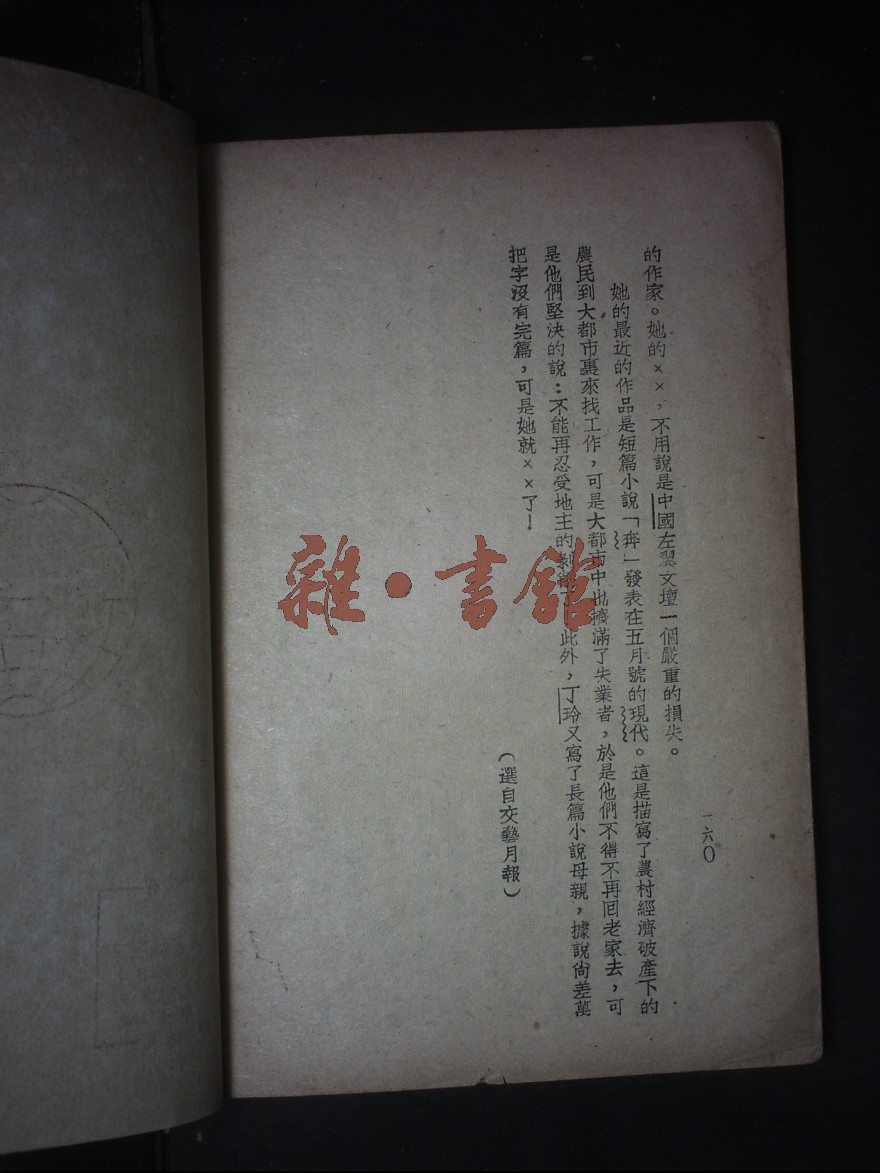 一六〇
的作家。她的××，不用說是中國左翼文壇一個嚴重的損失。
她的最近的作品是短篇小說「奔」發表在五月號的現代。這是描寫了農村經濟破產下的
農民到大都市裏來找工作，可是大都市中也擠滿了失業者，於是他們不得不再回老家去，可
是他們堅決的說：不能再忍受地主的剝 此外，丁玲又寫了長篇小說母親，據說尙差萬
把字沒有完篇，可是她就××了！
（選自文藝月報）
雜·書館